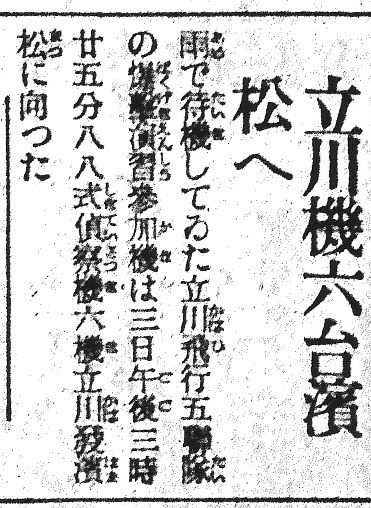 立川機六台濱
松へ
雨で待機してゐた立川飛行五聯隊
の爆撃演習参加機は三日午後三時
廿五分八八式偵察機六機立川發濱
松に向つた